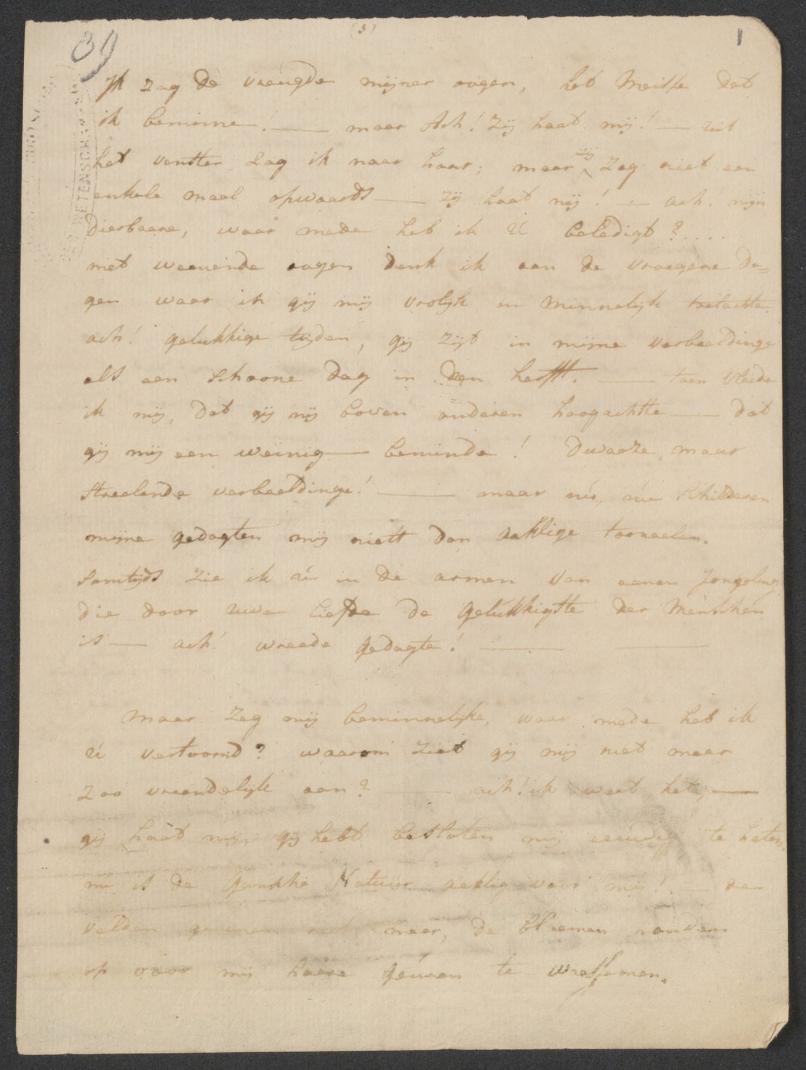 (3)
39
1
Ik zag de vreugde mijner oogen, het Meisje dat
ik beminne! — maar Ach! Zij haat mij! — uit
het venster zag ik naar haar; maar zij zag niet een
enkele maal opwaards — zij haat mij! — ach. mijn
Dierbaare, waar mede heb ik U beledigt? ....
met weenende oogen denk ik aan de vroegere da=
gen waar in gij mij vrolijk en Minnelijk
ach! gelukkige tijden, gij zijt in mijne verbeeldinge
als een schoone dag in den herfst. — toen vleide
ik mij, dat gij mij boven anderen hoogachtte — dat
gij mij een weinig — beminde! Dwaaze, maar
streelende verbeeldinge! — maar nu, nu schilderen
mijne gedagten mij niets dan aaklige tooneelen.
Somtijds zie ik u in de armen van eenen Jongeling,
die door uwe liefde de gelukkigste der Menschen
is — ach! wreede gedagte! —
Maar zeg mij beminnelijke, waar mede heb ik
U vertoornd? waarom ziet gij mij niet meer
zoo vriendelijk aan? — ach! ik weet het, —
gij haat mij, gij hebt besloten mij eeuwig te haten,
nu is de Natuur aaklig voor mij! —
velden meer, de bloemen
op voor mij haare geuren te